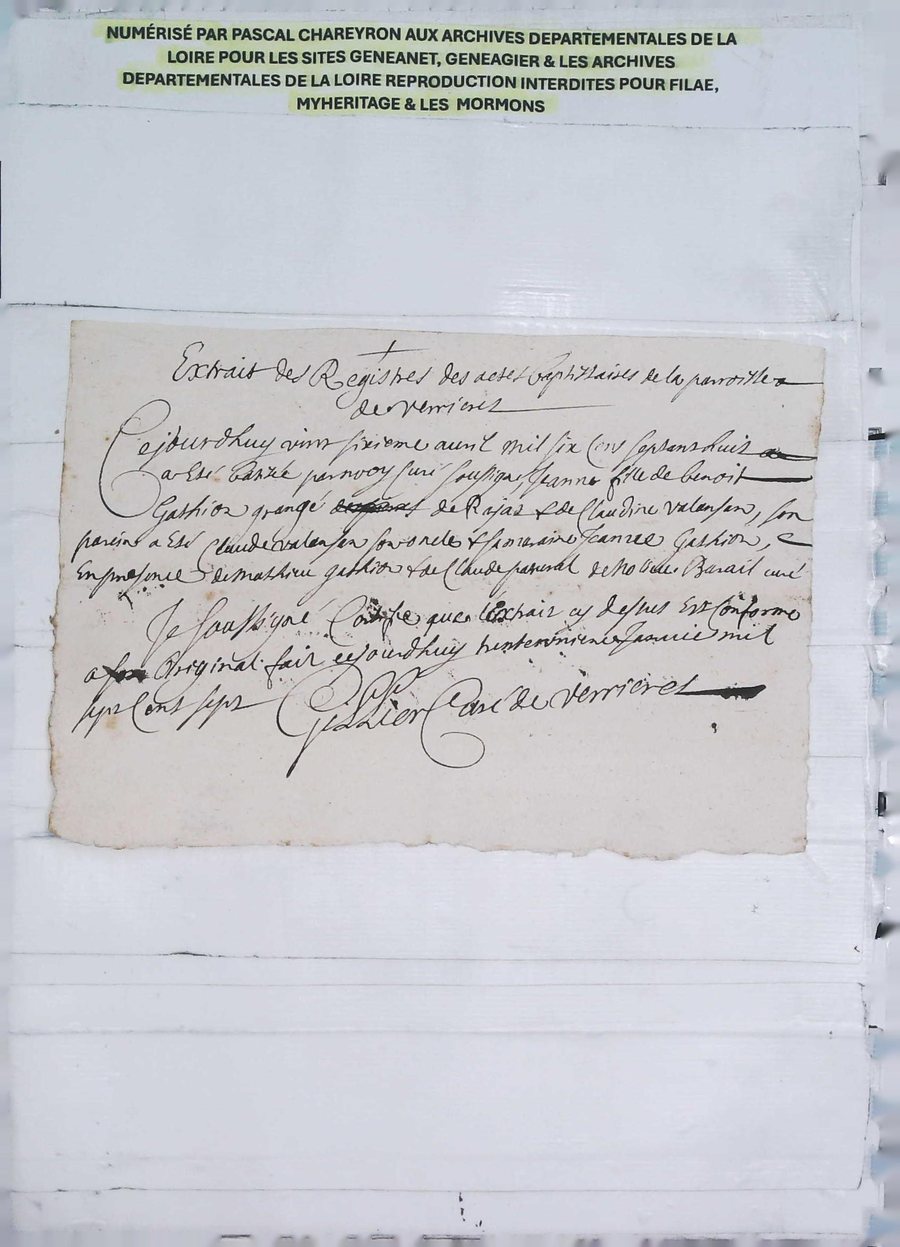 NUMÉRISÉ PAR PASCAL CHAREYRON AUX ARCHIVES DEPARTEMENTALES DE LA
LOIRE POUR LES SITES GENEANET, GENEAGIER & LES ARCHIVES
DEPARTEMENTALES DE LA LOIRE REPRODUCTION INTERDITES POUR FILAE,
MYHERITAGE & LES MORMONS
Extrait des Registres des actes baptistaires de la parroisse
de verrieres
Cejourdhuy vint sixieme avril mil six cens septant huit
a esté batizé par moy curé soussigné Jeanne fille de benoit
Gashion grangé de Rajas & de Claudine valansan, son
parein a esté Claude valansan son oncle & sa maraine Jeanne Gashion,
En presence de mathieu gashion & de Claude patural de Burail curé
Je soussigné Certifie que lextrait cy dessus Est conforme
a son original fait cejourdhuy Janvie mil
sept Cent sept Curé de verrieres